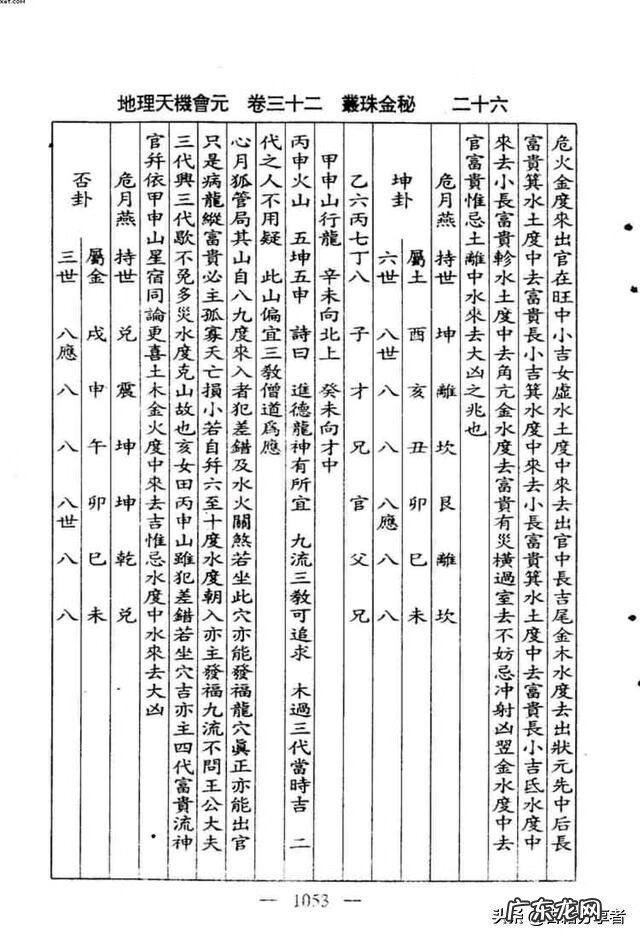 xet.com
地理天機會元 卷三十二 叢珠金秘 二十六
危火金度來出官在旺中小吉女虛水土度中來去出官中長吉尾金木水度去出狀元先中后長
富貴箕水土度中去富貴長小吉箕水度中來去小長富貴箕水土度中去富貴長小吉氐水度中
來去小長富貴軫水土度中去角亢金水度去富貴有災橫過室去不妨忌冲射凶翌金水度中去
官富貴惟忌土離中水來去大凶之兆也
危月燕 持世 坤 離 坎 艮 離 坎
坤卦 屬土 酉 亥 丑 卯 巳 未
六世 八世 八 八 八應 八 八
乙六丙七丁八 子 才 兄 官 父 兄
甲申山行龍 辛未向北上 癸未向才中
丙申火山 五坤五申 詩曰 進德龍神有所宜 九流三教可追求 木過三代當時吉 二
代之人不用疑 此山偏宜三教僧道爲應
心月狐管局其山自八九度來入者犯差錯及水火關煞若坐此穴亦能發福龍穴眞正亦能出官
只是病龍縱富貴必主孤寡夭亡損小若自幷六至十度水度朝入亦主發福九流不問王公大夫
三代興三代歇不免多災水度克山故也亥女田丙申山雖犯差錯若坐穴吉亦主四代富貴流神
官幷依甲申山星宿同論更喜土木金火度中來去吉惟忌水度中水來去大凶
危月燕 持世 兌 震 坤 坤 乾 兌
否卦 屬金 戌 申 午 卯 巳 未
三世 八應 八 八 八世 八 八
— 1053 —
头条@古籍分享者
广东龙网